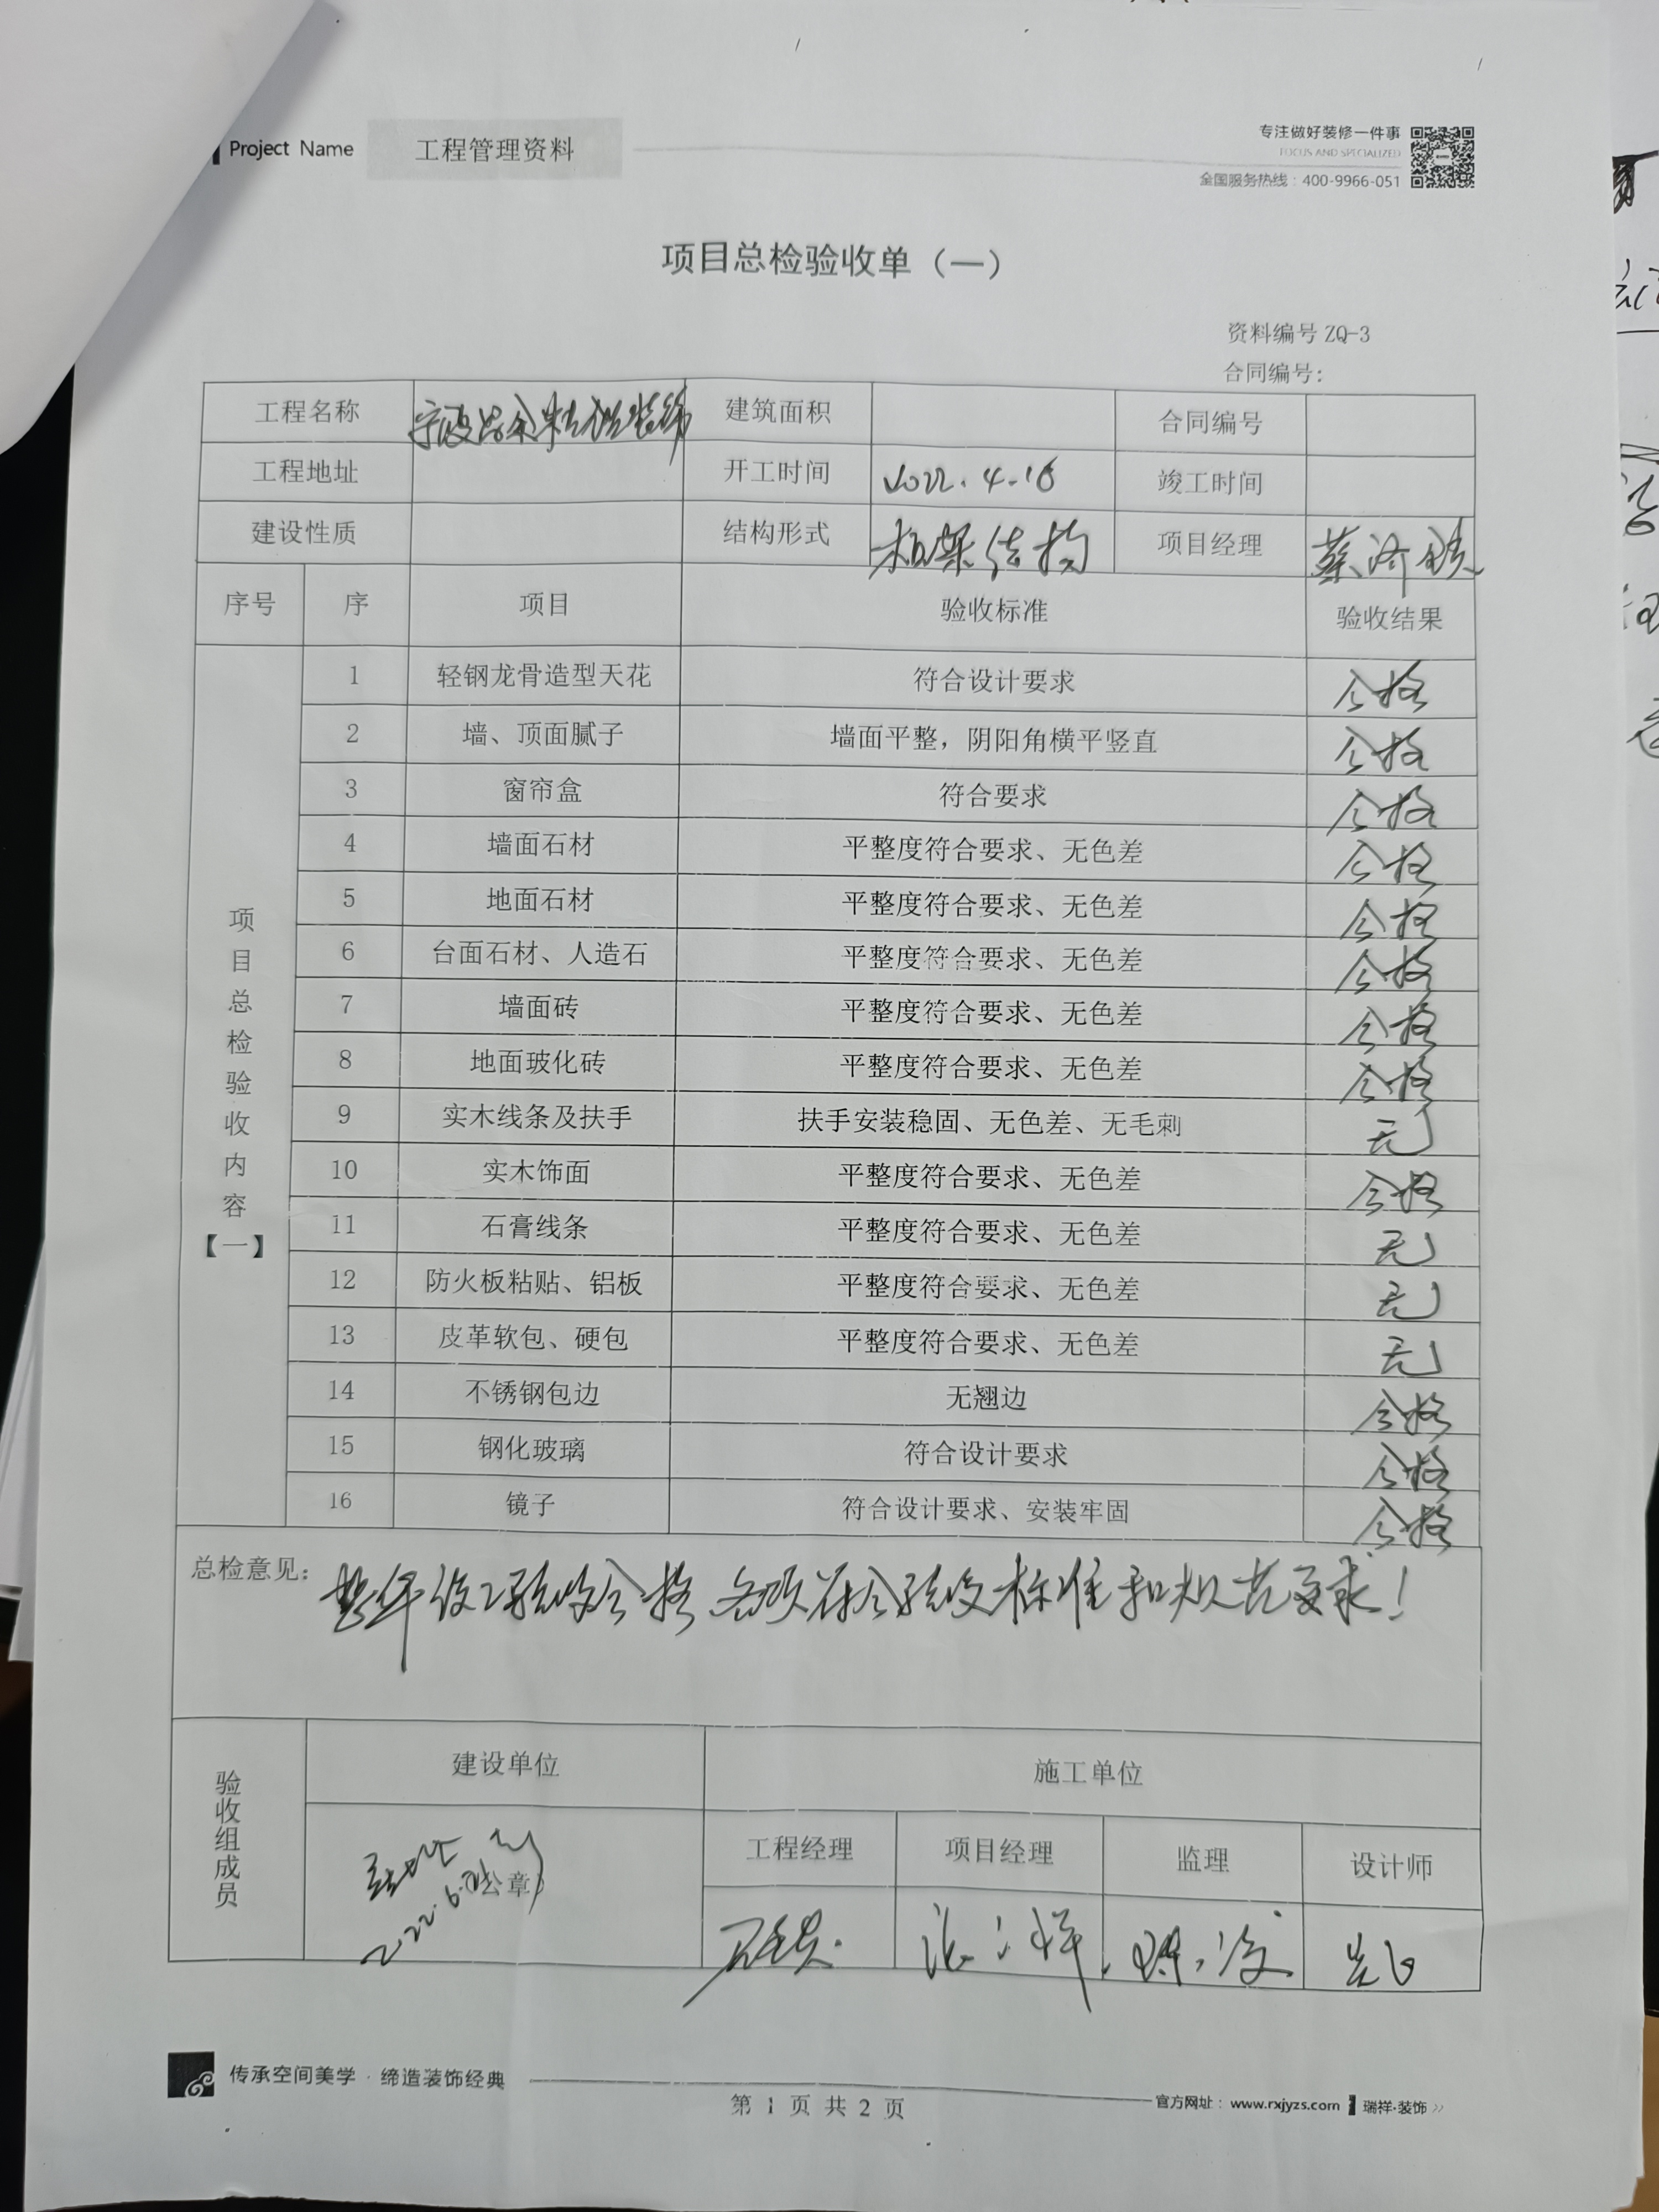 Project Name 工程管理资料
专注做好装修一件事
FOCUS AND SPECIALIZED
全国服务热线：400-9966-051
项目总检验收单（一）
资料编号 ZQ-3
合同编号：
工程名称 建筑面积 合同编号
工程地址 开工时间 2022.4.16 竣工时间
建设性质 结构形式 框架结构 项目经理
序号 序 项目 验收标准 验收结果
项目总检验收内容【一】
1 轻钢龙骨造型天花 符合设计要求 合格
2 墙、顶面腻子 墙面平整，阴阳角横平竖直 合格
3 窗帘盒 符合要求 合格
4 墙面石材 平整度符合要求、无色差 合格
5 地面石材 平整度符合要求、无色差 合格
6 台面石材、人造石 平整度符合要求、无色差 合格
7 墙面砖 平整度符合要求、无色差 合格
8 地面玻化砖 平整度符合要求、无色差 合格
9 实木线条及扶手 扶手安装稳固、无色差、无毛刺 无
10 实木饰面 平整度符合要求、无色差 合格
11 石膏线条 平整度符合要求、无色差 无
12 防火板粘贴、铝板 平整度符合要求、无色差 无
13 皮革软包、硬包 平整度符合要求、无色差 无
14 不锈钢包边 无翘边 合格
15 钢化玻璃 符合设计要求 合格
16 镜子 符合设计要求、安装牢固 合格
总检意见：验收合格、各项符合验收标准和规范要求！
验收组成员 建设单位 施工单位
工程经理 项目经理 监理 设计师
公章）
传承空间美学·缔造装饰经典
第 1 页 共 2 页
官方网址：www.rxjyzs.com 瑞祥·装饰